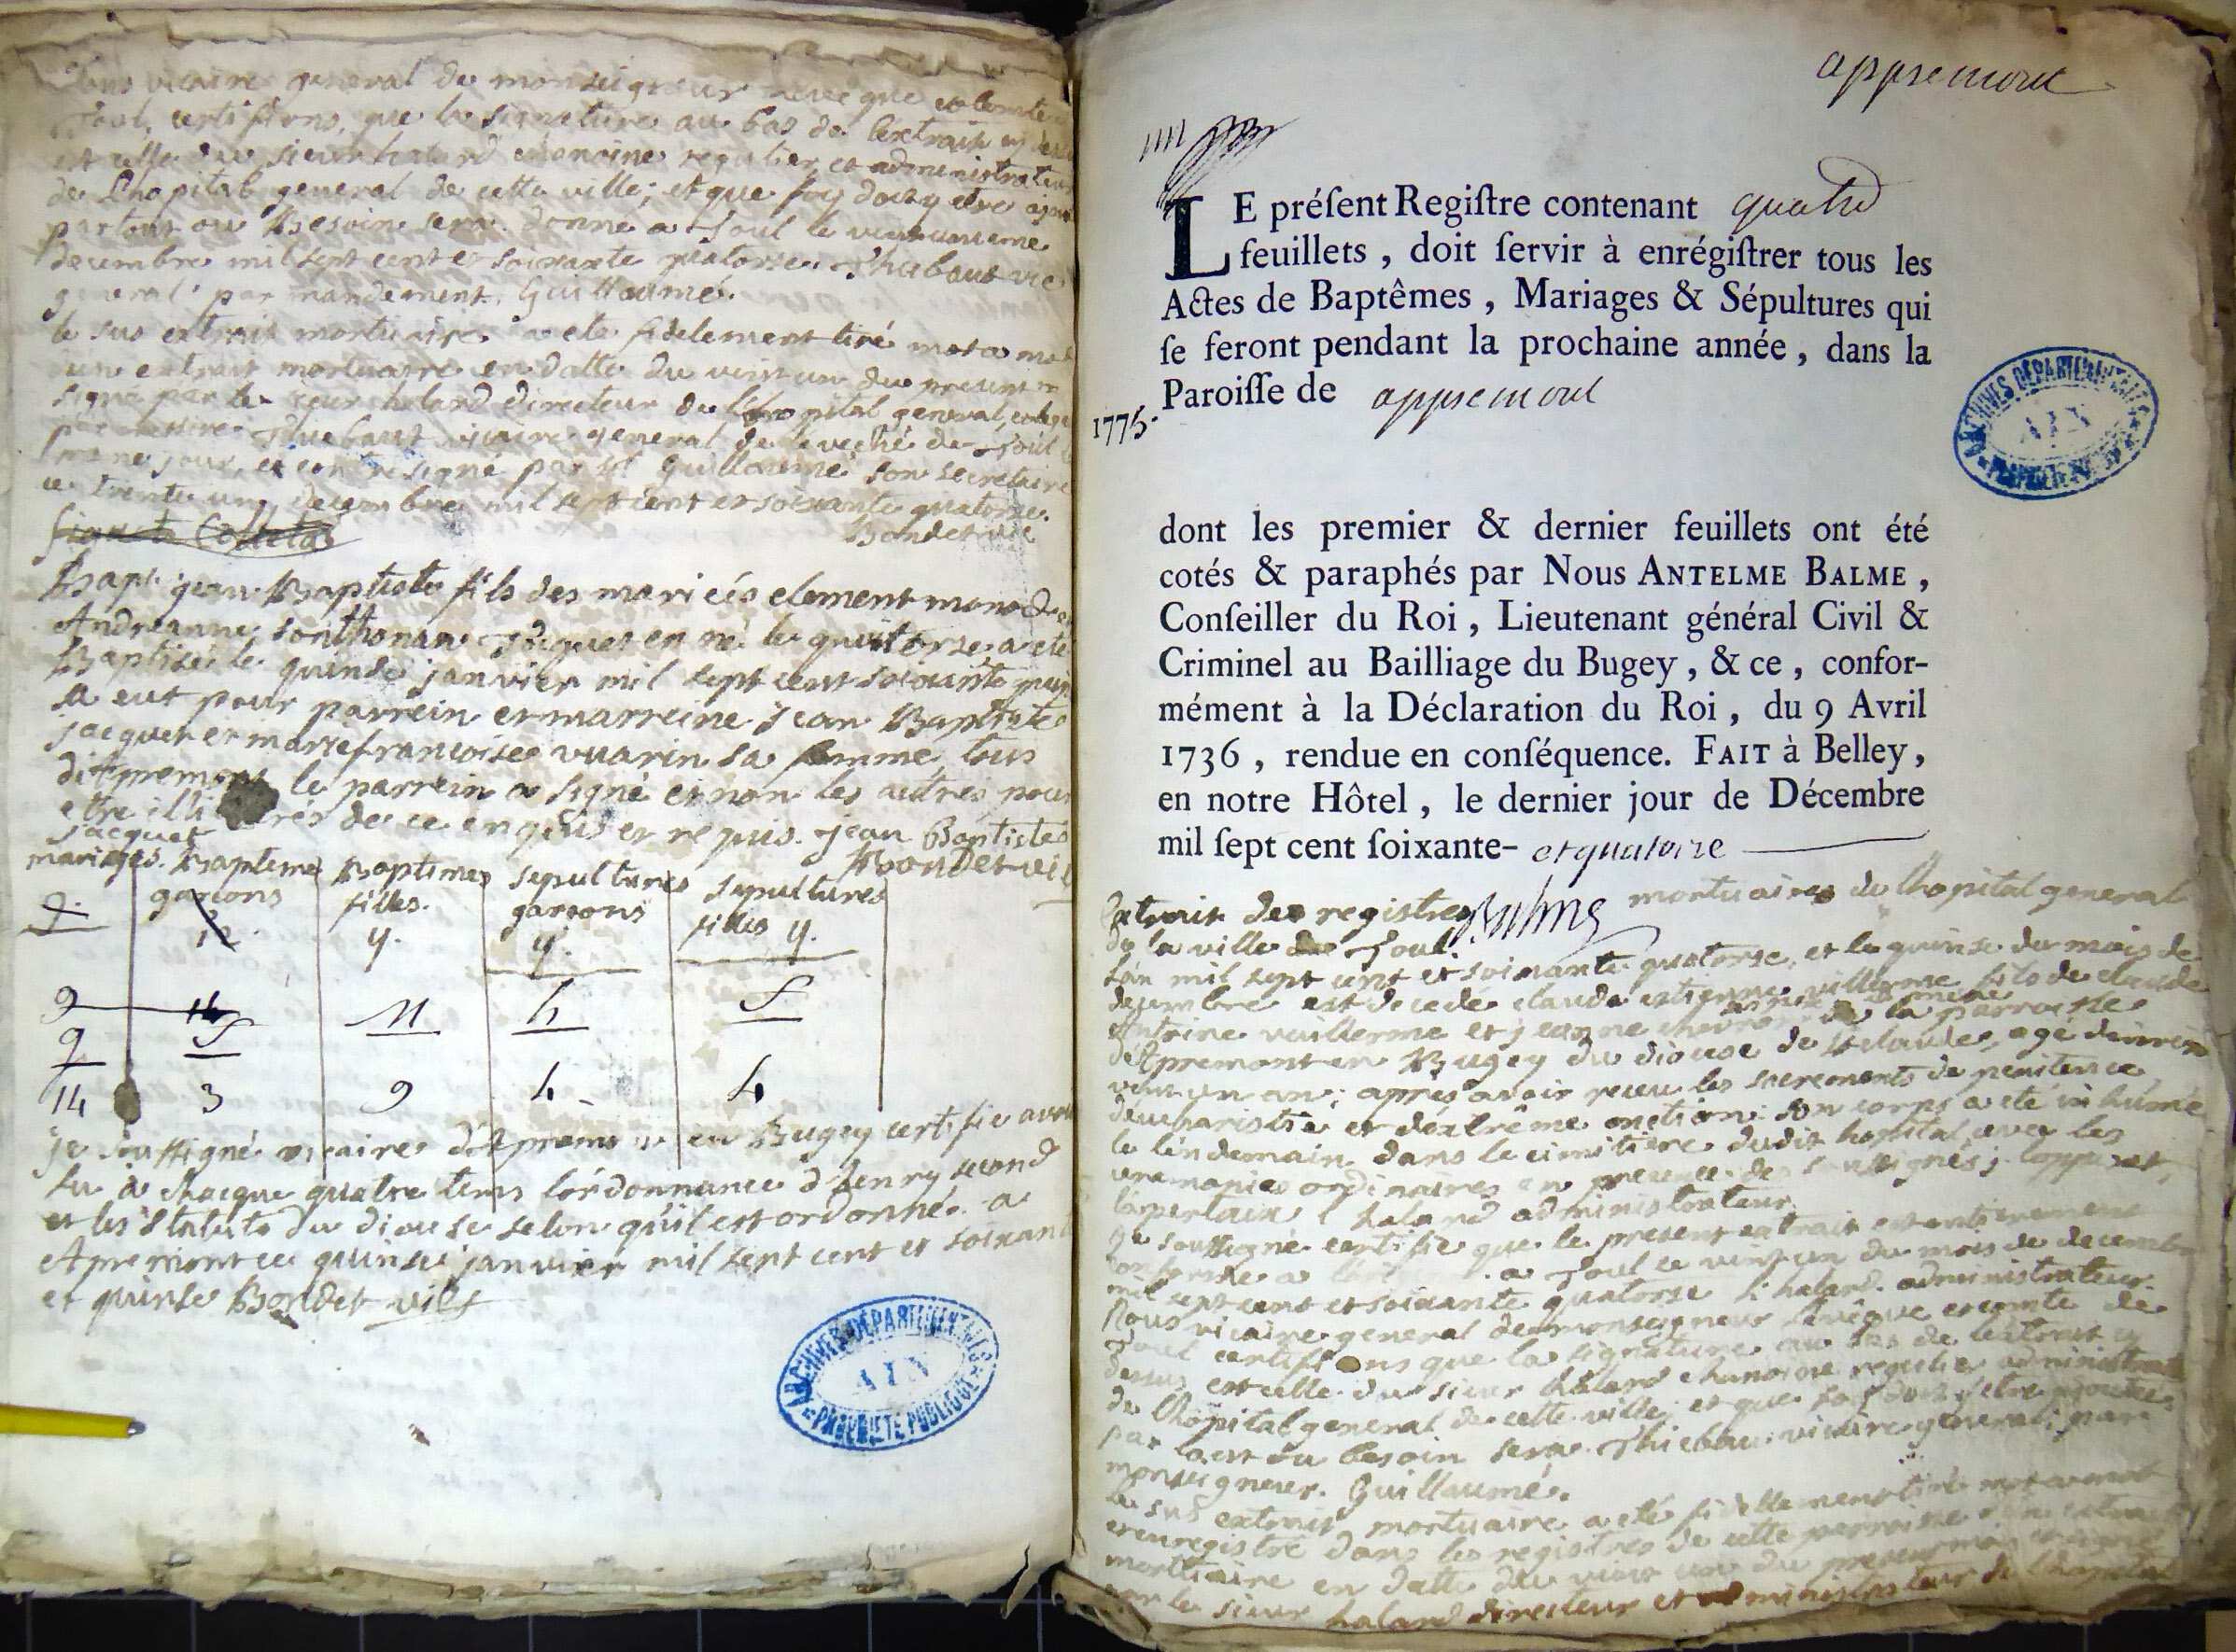 vicaire general de monseigneur
certifions, que la signature au bas de l'extrait
du sieur halard chanoine regulier et administrateur
de Lhopital general de cette ville; et que foy
partout ou Besoin sera. donné a Toul le
decembre mil sept cent et soixante quatorse.
general par mandement. Guillaumé.
le sus extrait mortuaire a eté fidelement tiré mot a mot
un extrait mortuaire en datte du vint un du present
signé par le sieur halard directeur de Lhopital general,
vicaire general de Toul
jour, et contresigné par Guillaumé son secretaire
ce trente un decembre mil sept cent et soixante quatorse.
Bondet vic
Bapt. jean Baptiste fils des mariés clement
Andreanne sonthonan né le quatorse, a eté
Baptisé le quinse janvier mil sept cent soixante
a eut pour parrein et marreine jean Baptiste
jacquet et marie francoise vuarin sa femme, tous
d'Apremont le parrein a signé et non les autres pour
etre de ce enquis et requis. jean Baptiste
jacquet Bondet vic
mariages. Baptemes Baptemes sepultures sepultures
garcons filles. garcons filles
9. 12. y. y. y.
9 14
9 5 11 h 5
14 3 9 h h
je soussigné vicaire d'Apremont en Bugey certifie avoir
lu à chacque quatre tems l'ordonnance d'henry second
et les statuts du diocese selon qu'il est ordonné. a
Apremont ce quinse janvier mil sept cent et soixante
et quinse Bondet vic
appremont
LE préſent Regiſtre contenant quatre
feuillets , doit ſervir à enrégiſtrer tous les
Actes de Baptêmes , Mariages & Sépultures qui
ſe feront pendant la prochaine année , dans la
Paroiſſe de appremont
1775.
dont les premier & dernier feuillets ont été
cotés & paraphés par Nous ANTELME BALME ,
Conſeiller du Roi , Lieutenant général Civil &
Criminel au Bailliage du Bugey , & ce , confor-
mément à la Déclaration du Roi , du 9 Avril
1736 , rendue en conſéquence. FAIT à Belley ,
en notre Hôtel , le dernier jour de Décembre
mil ſept cent ſoixante- et quatorze
Balme
ARCHIVES DÉPARTEMENTALES
AIN
PROPRIÉTÉ PUBLIQUE
Extrait des registres mortuaires de lhopital general
de la ville de Toul.
L'an mil sept cent et soixante quatorse, et le quinse du mois de
decembre est decedé claude estienne villerme fils de claude
Antoine vuillerme et jeanne la parroisse
d'Apremont en Bugey du diocese de st claude, agé d'environ
vint un an; après avoir receu les sacrements de penitence
d'eucharistie et d'éxtrême onction. son corps a eté inhumé
le lendemain dans le cimitiere dudit hopital avec les
ceremonies ordinaires en presence des soussignés
halard administrateur.
je soussigné certifie que le present extrait est entierement
conforme a a Toul ce vint un du mois de decembre
mil sept cent et soixante quatorse halard administrateur.
Nous vicaire general de monseigneur l'evêque et comte de
Toul certifions que la signature au bas de l'extrait cy
dessus est celle du sieur halard chanoine regulier administrateur
de lhopital general de cette ville; et que foy doit y etre ajoutée
par tout ou besoin sera. vicaire general; par
monseigneur. Guillaumé.
le sus extrait mortuaire a eté fidellement tiré mot a mot
et enregistré dans les registres de cette parroisse d'un extrait
mortuaire en datte du vint un du present mois
par le sieur halard directeur et administrateur de lhopital
ARCHIVES DÉPARTEMENTALES
AIN
PROPRIÉTÉ PUBLIQUE